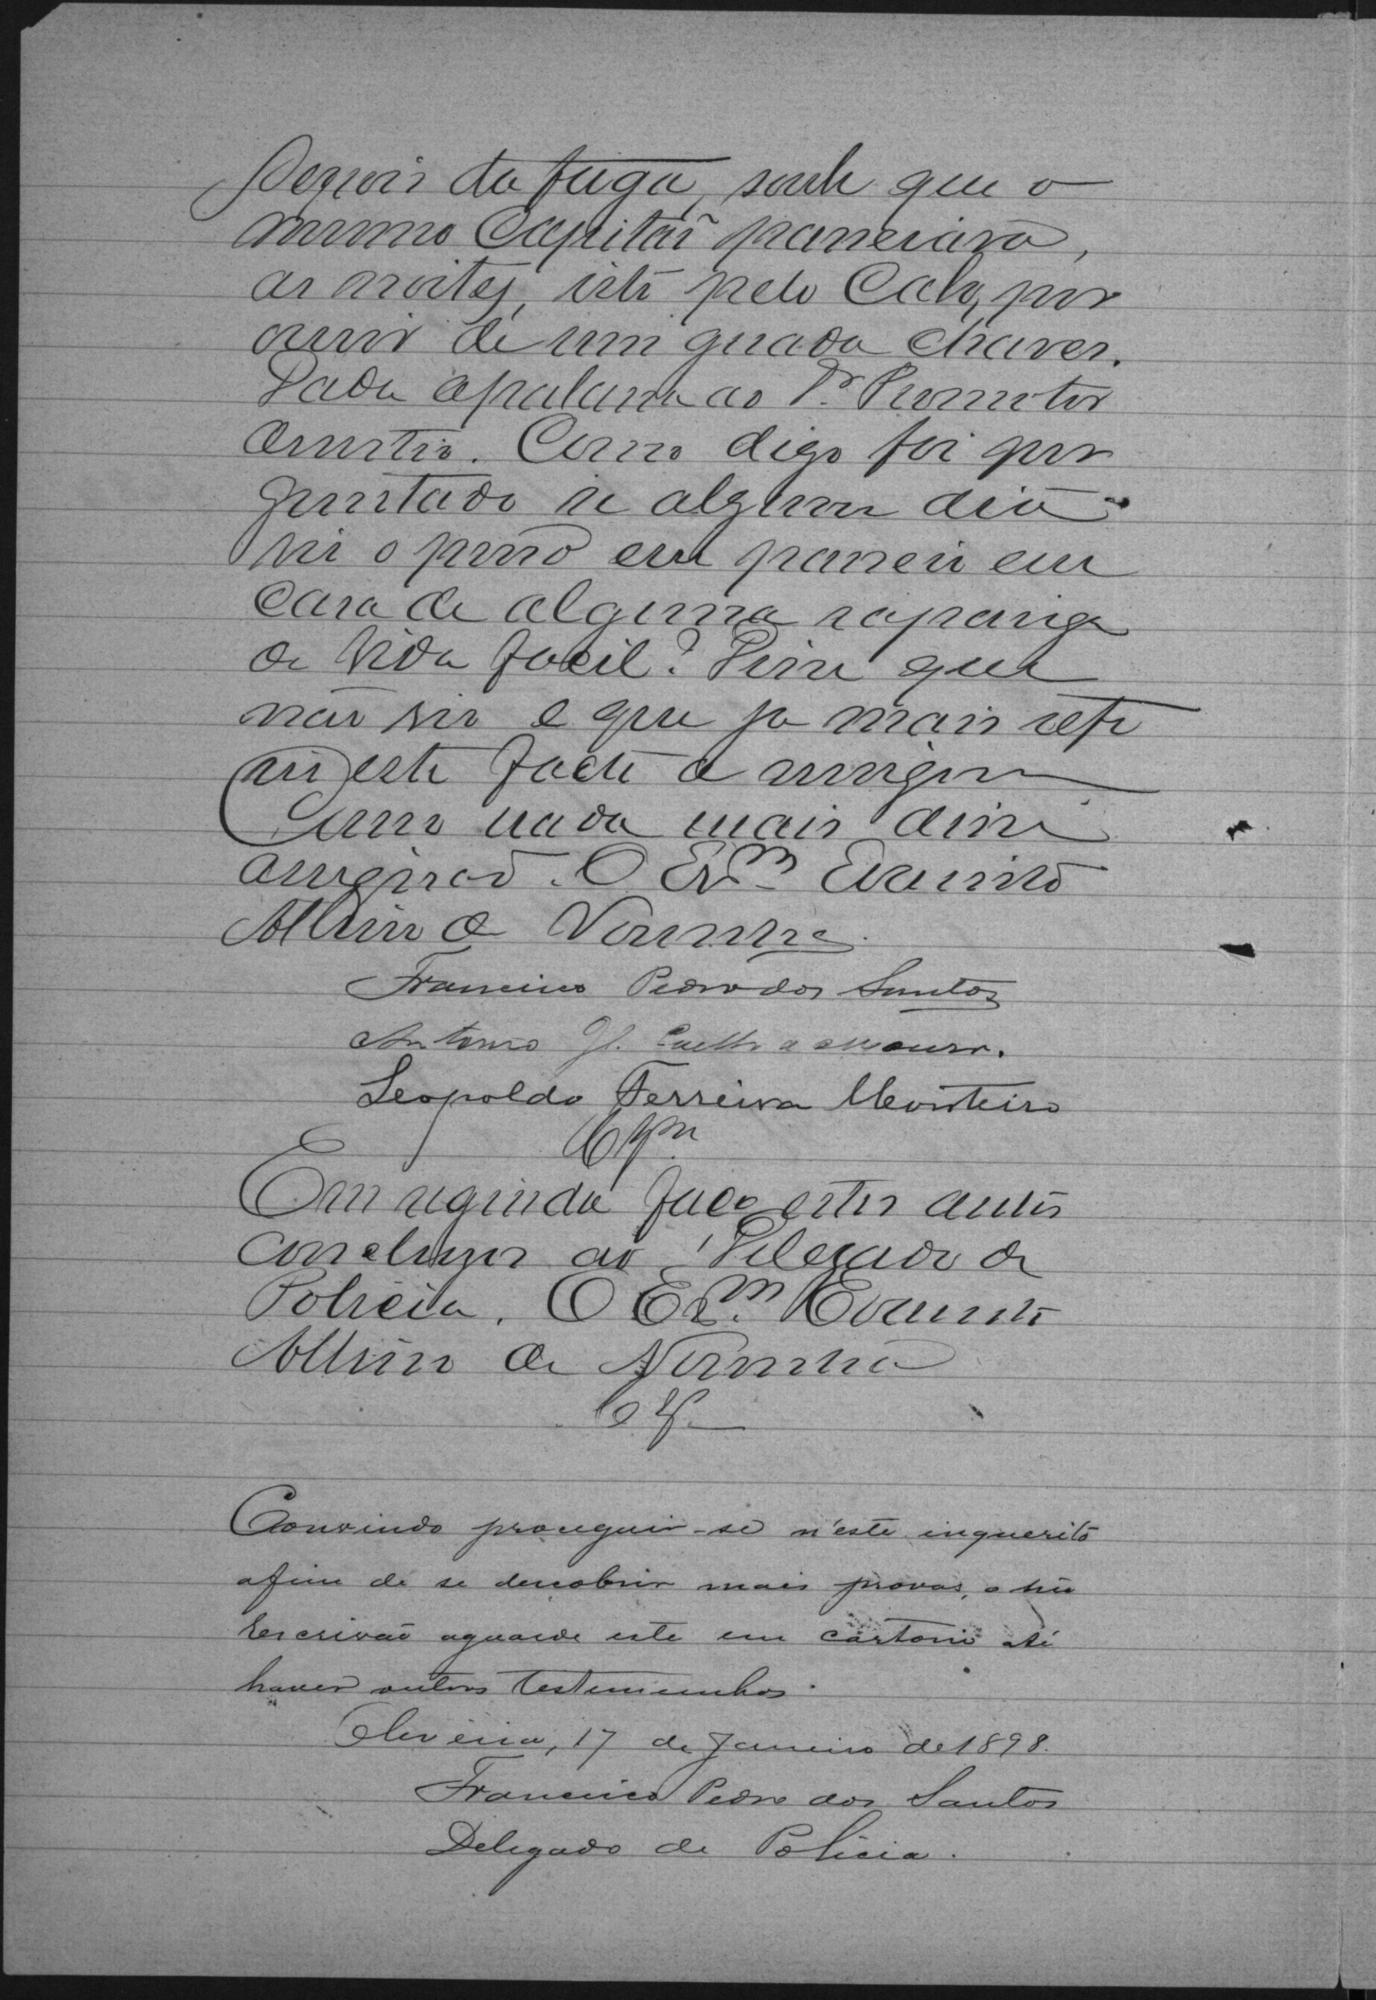 Depois da fuga, soube que o
mesmo Capitão passeiava,
as noites, isto pelo Cabo, por
ouvir de um guarda Chaves.
Dada a palavra ao Dr. Promotor
Como digo foi per
guntado se algum dia
vio o preso em passeio em
casa de alguma rapariga
de vida facil? Disse que
não vio e que ja mais refe
rio este facto a ningem
Como nada mais disse
O Esm. Evaristo
Albino de Noronha
Francisco Pedro dos Santos
Antonio Coelho de Moura.
Leopoldo Ferreira Monteiro
Em seguida faço estes autos
conclusos ao Delegado de
Policia. O Esm. Evaristo
Albino de Noronha
Convindo proseguir-se n'este inquerito
afim de se descobrir mais provas, o
Escrivão aguarde este em cartorio até
haver outras testemunhas.
Oliveira, 17 de Janeiro de 1898.
Francisco Pedro dos Santos
Delegado de Policia.